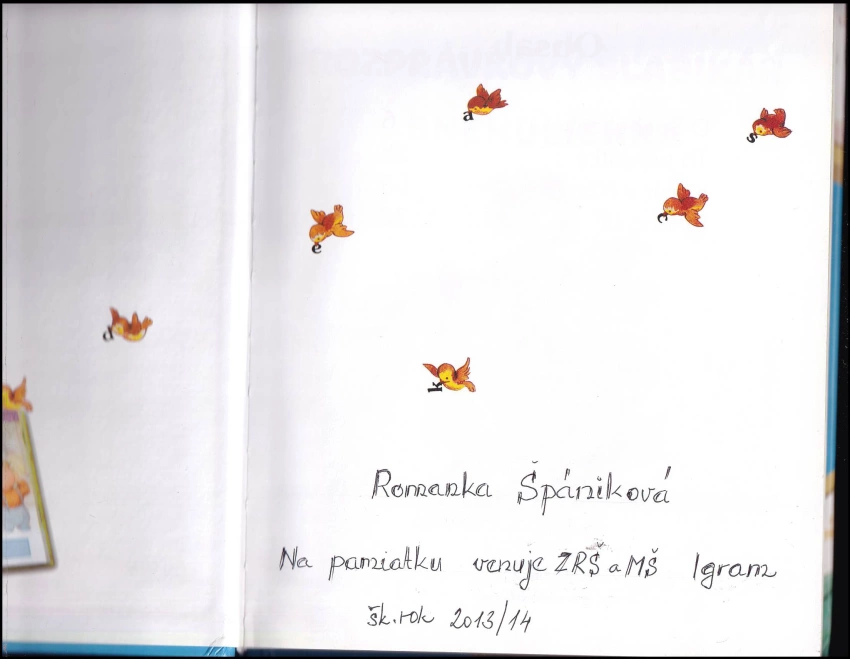 a
s
e
c
d
k
Romanka Špániková
Na pamiatku venuje ZRŠ a MŠ Igram
šk. rok 2013/14